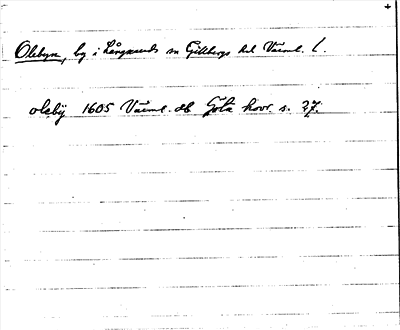 Olebyn, by i Långseruds sn Gillbergs hd Värml. l.
olebÿ 1605 Värml. db Göta hovr. s. 27.